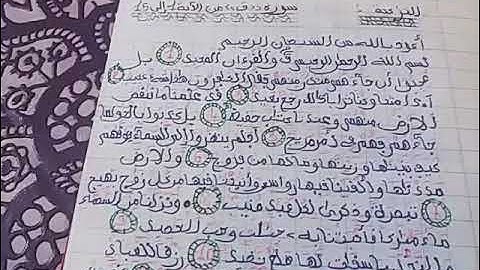 سورة ق من الآية
أعوذ بالله من الشيطان الرجيم
بسم الله الرحمن الرحيم ق والقرءان المجيد بل
عجبوا أن جاءهم منذر منهم فقال الكفرون هذا شيء عجيب
أءذا متنا وكنا ترابا ذلك رجع بعيد قد علمنا ما تنقص
الارض منهم وعندنا كتب حفيظ بل كذبوا بالحق لما
جاءهم فهم في أمر مريج أفلم ينظروا إلى السماء فوقهم
كيف بنينها وزينها وما لها من فروج والارض
مددنها وألقينا فيها رواسي وأنبتنا فيها من كل زوج بهيج
تبصرة وذكرى لكل عبد منيب ونزلنا من السماء
ماء مبركا فأنبتنا به جنات وحب الحصيد
والنخل باسقات لها طلع نضيد رزقا للعباد